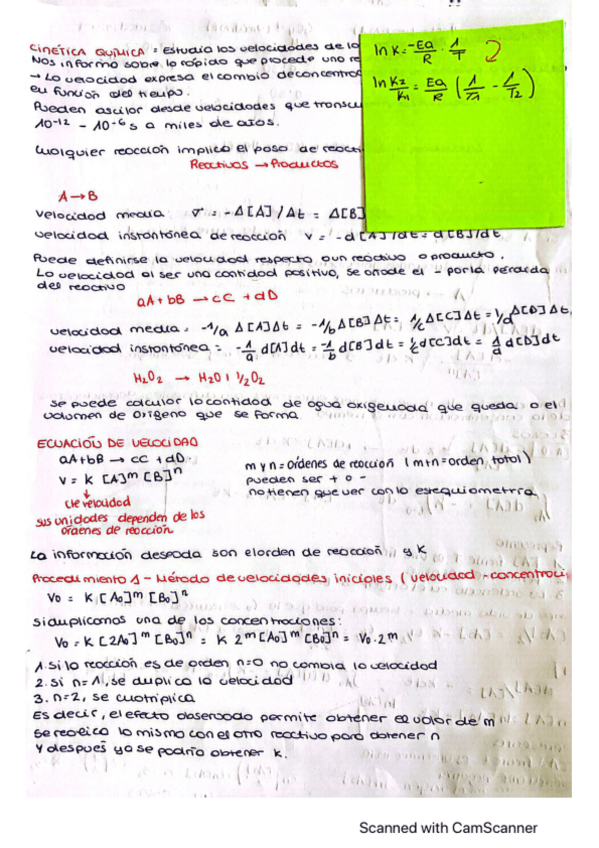 CINÉTICA QUÍMICA = estudia las velocidades de la
Nos informa sobre lo rápido que procede una re
→ La velocidad expresa el cambio de concentrac
en función del tiempo.
Pueden oscilar desde velocidades que transcu
10⁻¹² – 10⁻⁶ s a miles de años.
Cualquier reacción implica el paso de reacti
Reactivos → Productos
ln K = -Ea/R · 1/T
ln K2/K1 = Ea/R (1/T1 - 1/T2)
A → B
velocidad media: v = -Δ[A]/Δt = Δ[B]
velocidad instantánea de reacción v = -d[A]/dt = d[B]/dt
Puede definirse la velocidad respecto a un reactivo o producto.
La velocidad al ser una cantidad positiva, se añade el - por la pérdida
del reactivo
aA + bB → cC + dD
velocidad media = -1/a Δ[A]Δt = -1/b Δ[B]Δt = 1/c Δ[C]Δt = 1/d Δ[D]Δt
velocidad instantánea = -1/a d[A]dt = -1/b d[B]dt = 1/c d[C]dt = 1/d d[D]dt
H₂O₂ → H₂O + ½O₂
se puede calcular la cantidad de agua oxigenada que queda o el
volumen de oxígeno que se forma.
ECUACIÓN DE VELOCIDAD
aA+bB → cC + dD.
v = K [A]ᵐ [B]ⁿ
cte velocidad
sus unidades dependen de los
órdenes de reacción
m y n = órdenes de reacción (m+n=orden total)
pueden ser + o -
no tienen que ver con la estequiometría
La información deseada son el orden de reacción y K
Procedimiento 1 - Método de velocidades iniciales (velocidad - concentraci
V₀ = K [A₀]ᵐ [B₀]ⁿ
si duplicamos una de las concentraciones:
V₀ = K [2A₀]ᵐ [B₀]ⁿ = K 2ᵐ [A₀]ᵐ [B₀]ⁿ = V₀·2ᵐ
1. si la reacción es de orden n=0 no cambia la velocidad
2. si n=1, se duplica la velocidad
3. n=2, se cuatriplica
Es decir, el efecto observado permite obtener el valor de m
Se realiza lo mismo con el otro reactivo para obtener n
Y después ya se podría obtener K.
Scanned with CamScanner